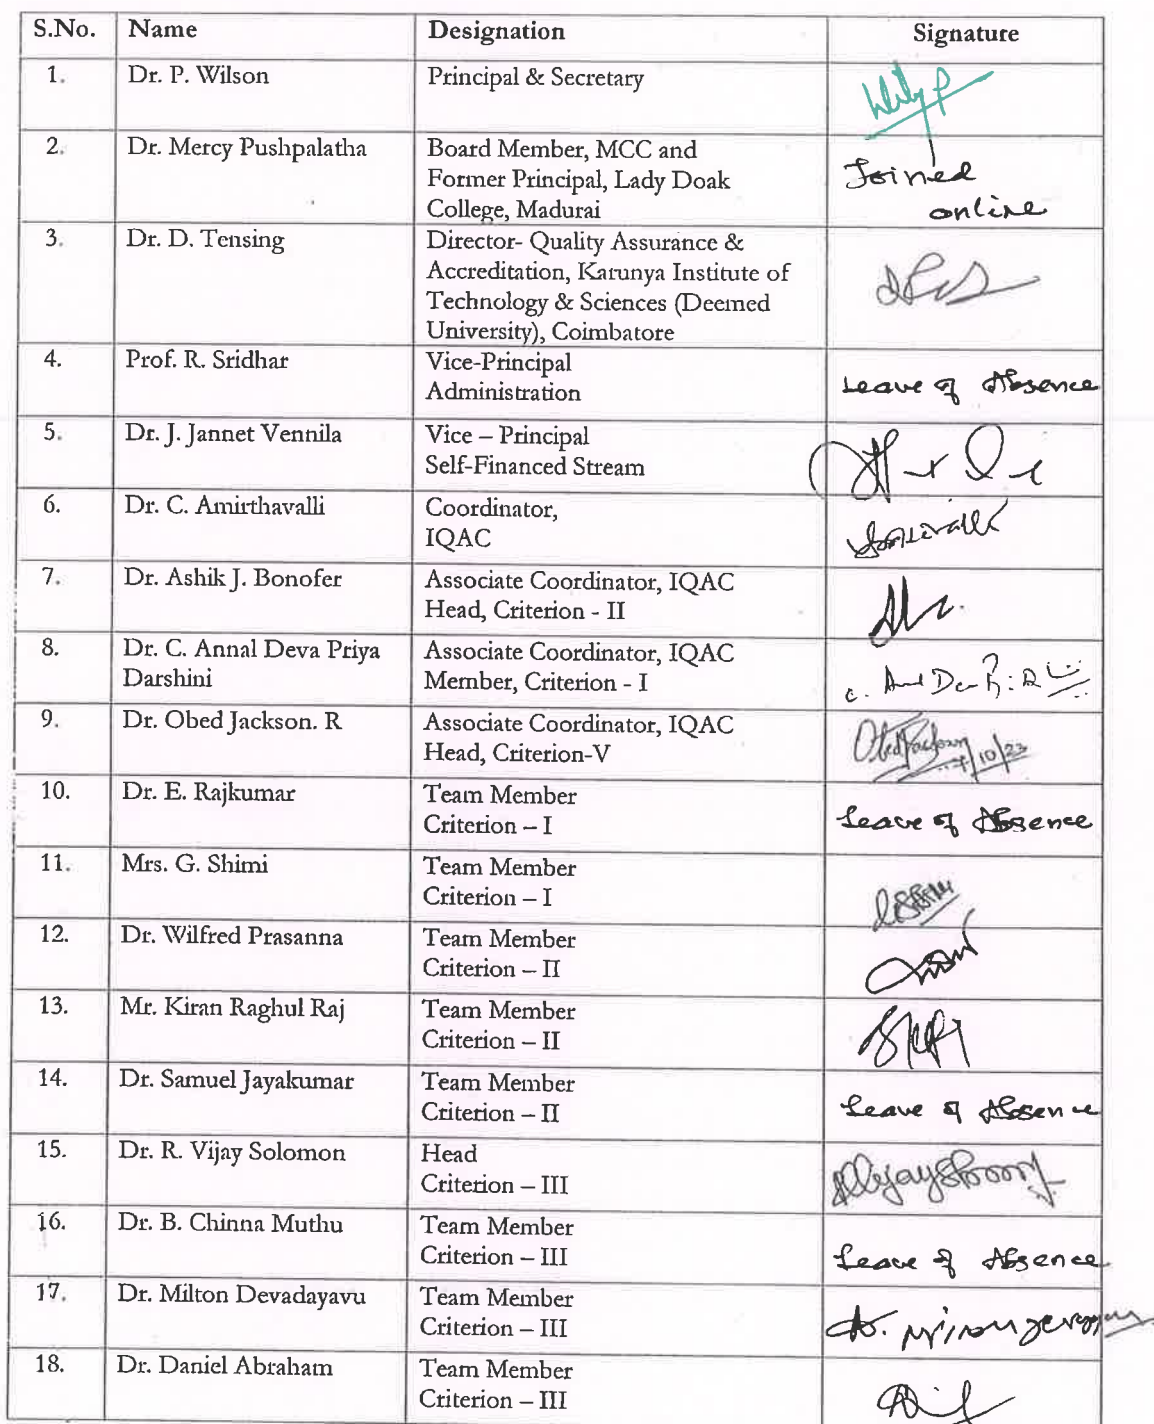 S.No. Name Designation Signature
1. Dr. P. Wilson Principal & Secretary
2. Dr. Mercy Pushpalatha Board Member, MCC and
Former Principal, Lady Doak
College, Madurai
Joined
online
3. Dr. D. Tensing Director- Quality Assurance &
Accreditation, Karunya Institute of
Technology & Sciences (Deemed
University), Coimbatore
4. Prof. R. Sridhar Vice-Principal
Administration
Leave of Absence
5. Dr. J. Jannet Vennila Vice – Principal
Self-Financed Stream
6. Dr. C. Amirthavalli Coordinator,
IQAC
7. Dr. Ashik J. Bonofer Associate Coordinator, IQAC
Head, Criterion - II
8. Dr. C. Annal Deva Priya Associate Coordinator, IQAC
Darshini Member, Criterion - I
9. Dr. Obed Jackson. R Associate Coordinator, IQAC
Head, Criterion-V
10. Dr. E. Rajkumar Team Member
Criterion – I
Leave of Absence
11. Mrs. G. Shimi Team Member
Criterion – I
12. Dr. Wilfred Prasanna Team Member
Criterion – II
13. Mr. Kiran Raghul Raj Team Member
Criterion – II
14. Dr. Samuel Jayakumar Team Member
Criterion – II
Leave of Absence
15. Dr. R. Vijay Solomon Head
Criterion – III
16. Dr. B. Chinna Muthu Team Member
Criterion – III
Leave of Absence
17. Dr. Milton Devadayavu Team Member
Criterion – III
18. Dr. Daniel Abraham Team Member
Criterion – III